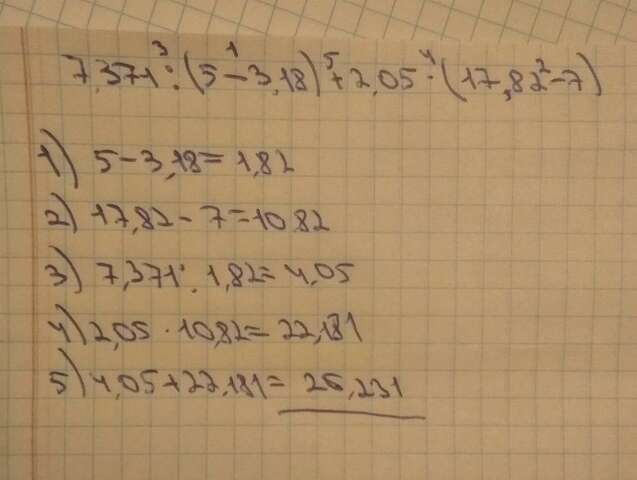 7,371 :³ (5 -¹ 3,18) +⁵ 2,05 ·⁴ (17,82 -² 7)
1) 5 - 3,18 = 1,82
2) 17,82 - 7 = 10,82
3) 7,371 : 1,82 = 4,05
4) 2,05 · 10,82 = 22,181
5) 4,05 + 22,181 = 26,231